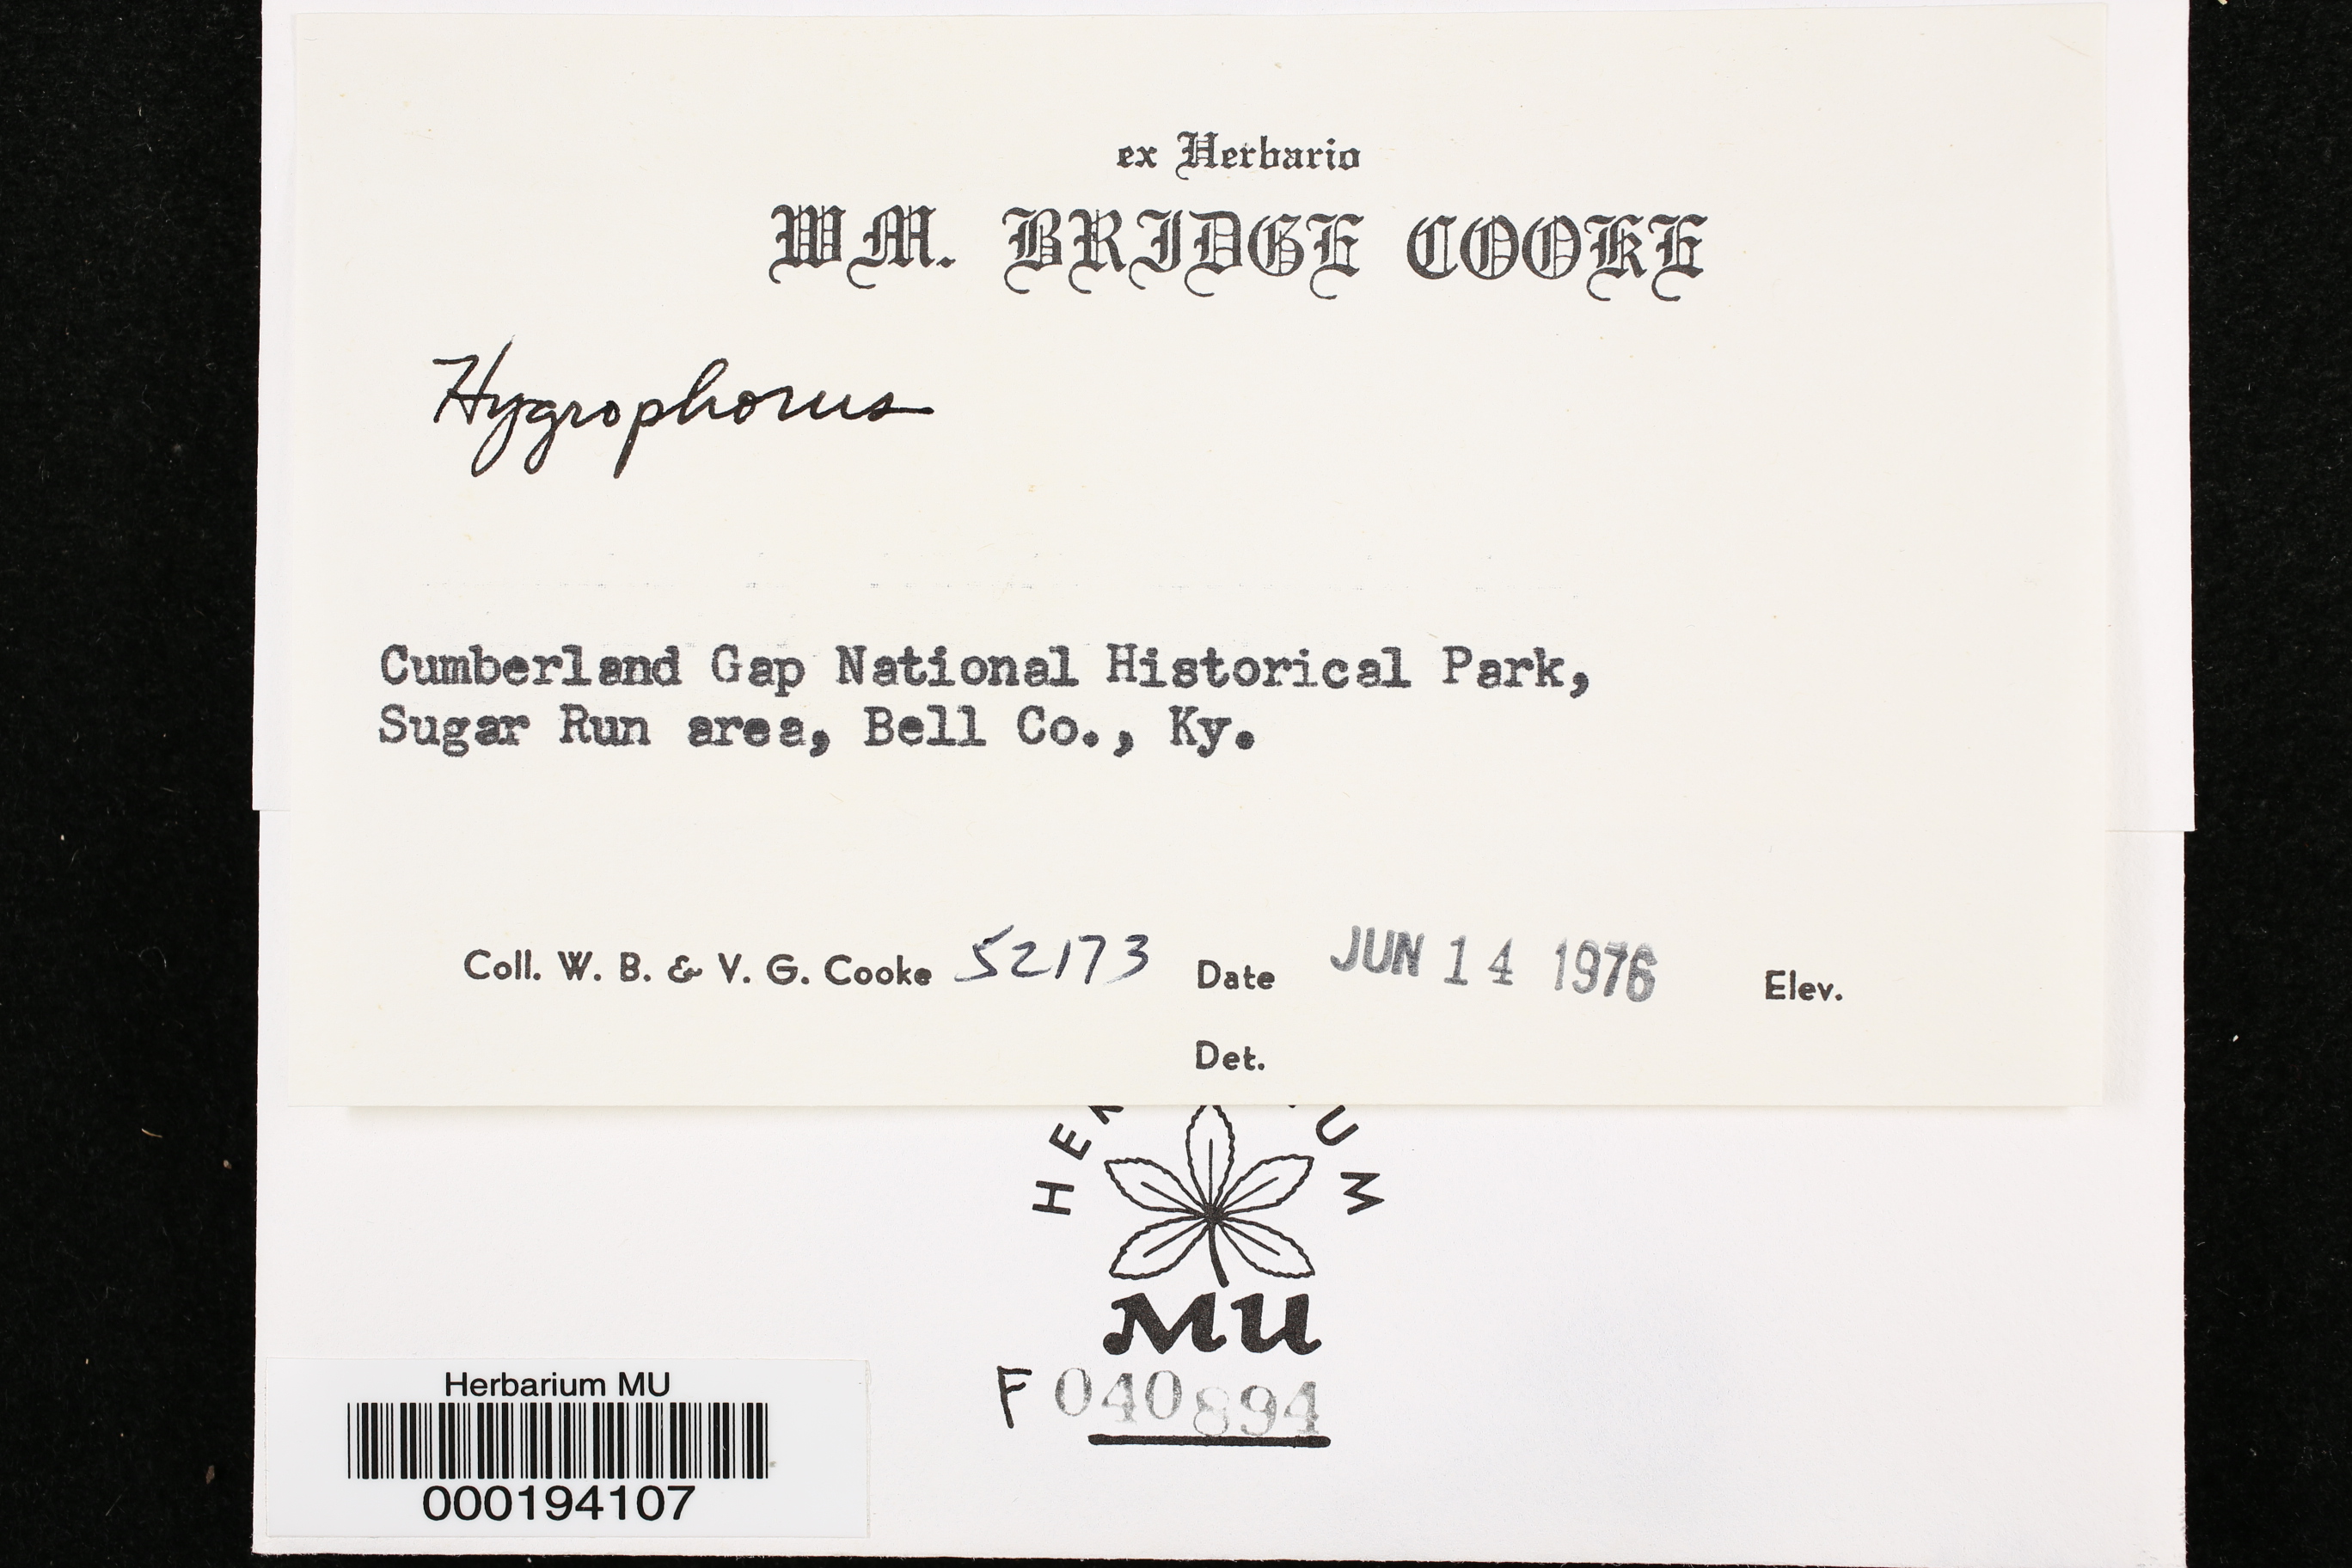 ex Herbario
WM. BRIDGE COOKE
Hygrophorus
Cumberland Gap National Historical Park,
Sugar Run area, Bell Co., Ky.
Coll. W. B. & V. G. Cooke 52173 Date JUN 14 1976 Elev.
Det.
MU
F 040894
Herbarium MU
000194107